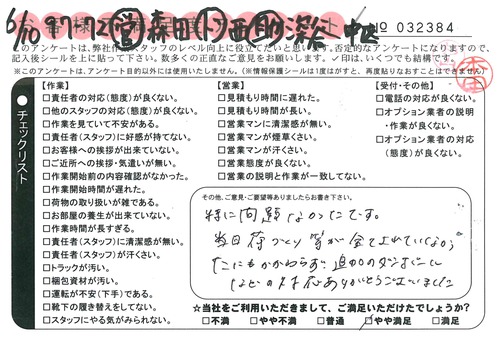 6/10 97-72 営 森田 ト 西 助 深谷 中区
№ 032384
このアンケートは、弊社作業スタッフのレベル向上に役立てたいと思います。否定的なアンケートになりますので、
記入後シールを上に貼って下さい。数多くの正直なご意見をお願いします。✓印は、いくつでも結構です。
※このアンケートは、アンケート目的以外には使用いたしません。(※情報保護シールは1度はがすと、再度貼りなおすことはできません)
チェックリスト
【作業】
□責任者の対応(態度)が良くない。
□他のスタッフの対応(態度)が良くない。
□作業を見ていて不安がある。
□責任者(スタッフ)に好感が持てない。
□お客様への挨拶が出来ていない。
□ご近所への挨拶・気遣いが無い。
□作業開始前の内容確認がなかった。
□作業開始時間が遅れた。
□荷物の取り扱いが雑である。
□お部屋の養生が出来ていない。
□作業時間が長すぎる。
□責任者(スタッフ)に清潔感が無い。
□責任者(スタッフ)が汗くさい。
□トラックが汚い。
□梱包資材が汚い。
□運転が不安(下手)である。
□靴下の履き替えをしてない。
□スタッフにやる気がみられない。
【営業】
□見積もり時間に遅れた。
□見積もり時間が長い。
□営業マンに清潔感が無い。
□営業マンが煙草くさい。
□営業マンが汗くさい。
□営業態度が良くない。
□営業の説明と作業が一致してない。
【受付・その他】
□電話の対応が良くない。
□オプション業者の説明
・作業が良くない。
□オプション業者の対応
(態度)が良くない。
その他、ご意見・ご要望等ありましたらお書き下さい。
特に問題なかったです。
当日荷づくり等が全て出来ていない
にもかかわらず 追加のダンボール
などの対応ありがとうございました
☆当社をご利用いただきまして、ご満足いただけたでしょうか?
□不満 □やや不満 □普通 □やや満足 □満足